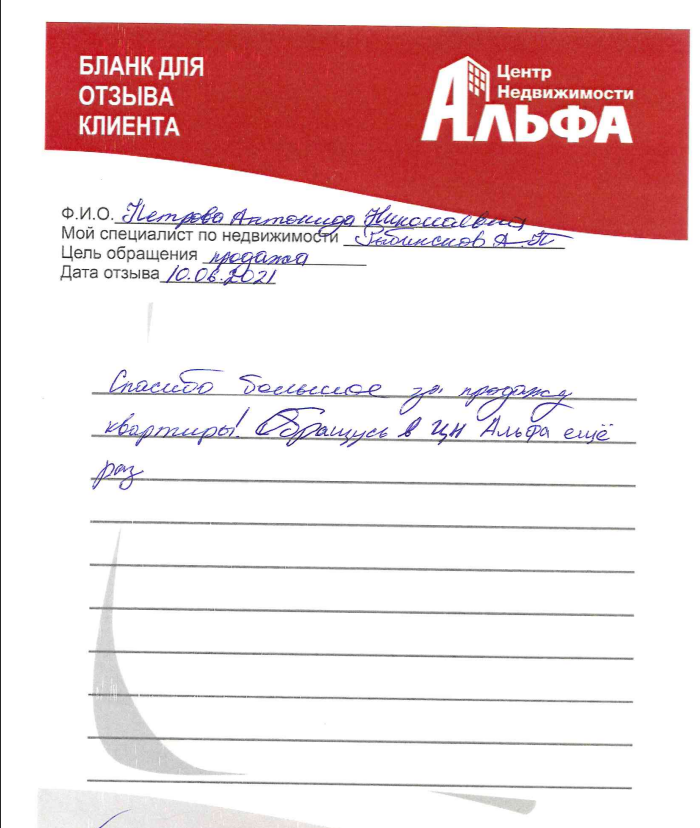 БЛАНК ДЛЯ
ОТЗЫВА
КЛИЕНТА
Центр
Недвижимости
АЛЬФА
Ф.И.О. Петрова Антонида Николаевна
Мой специалист по недвижимости А.П
Цель обращения продажа
Дата отзыва 10.06.2021
Спасибо большое за продажу
квартиры! Обращусь в ЦН Альфа ещё
раз